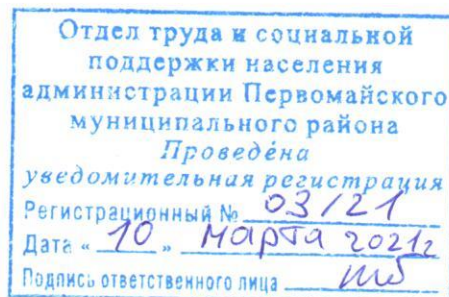 Отдел труда и социальной
поддержки населения
администрации Первомайского
муниципального района
Проведена
уведомительная регистрация
Регистрационный № 03/21
Дата « 10 » марта 2021г
Подпись ответственного лица